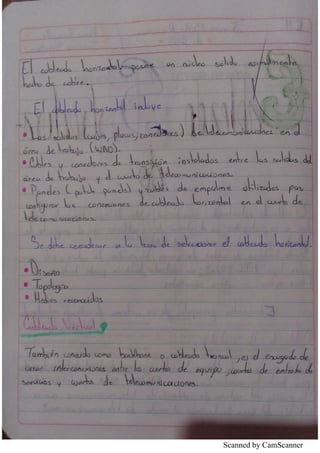 El cableado horizontal posee un núcleo solido normalmente
hecho de cobre.
El cableado horizontal incluye
• Las salidas (cajas, placas, conectores) de telecomunicaciones en el
área de trabajo (WAO).
• Cables y conectores de transición instalados entre las salidas del
área de trabajo y el cuarto de telecomunicaciones.
• Paneles (patch panels) y cables de empalme utilizados para
configurar las conexiones de cableado horizontal en el cuarto de
telecomunicaciones.
Se debe considerar a la hora de seleccionar el cableado horizontal.
• Diseño
• Topologia
• Medios reconocidos
Cableado Vertical
También conocido como backbone o cableado troncal, es el encargado de
crear interconexiones entre los cuartos de equipo, cuartos de entrada de
servicios y cuartos de telecomunicaciones.
Scanned by CamScanner